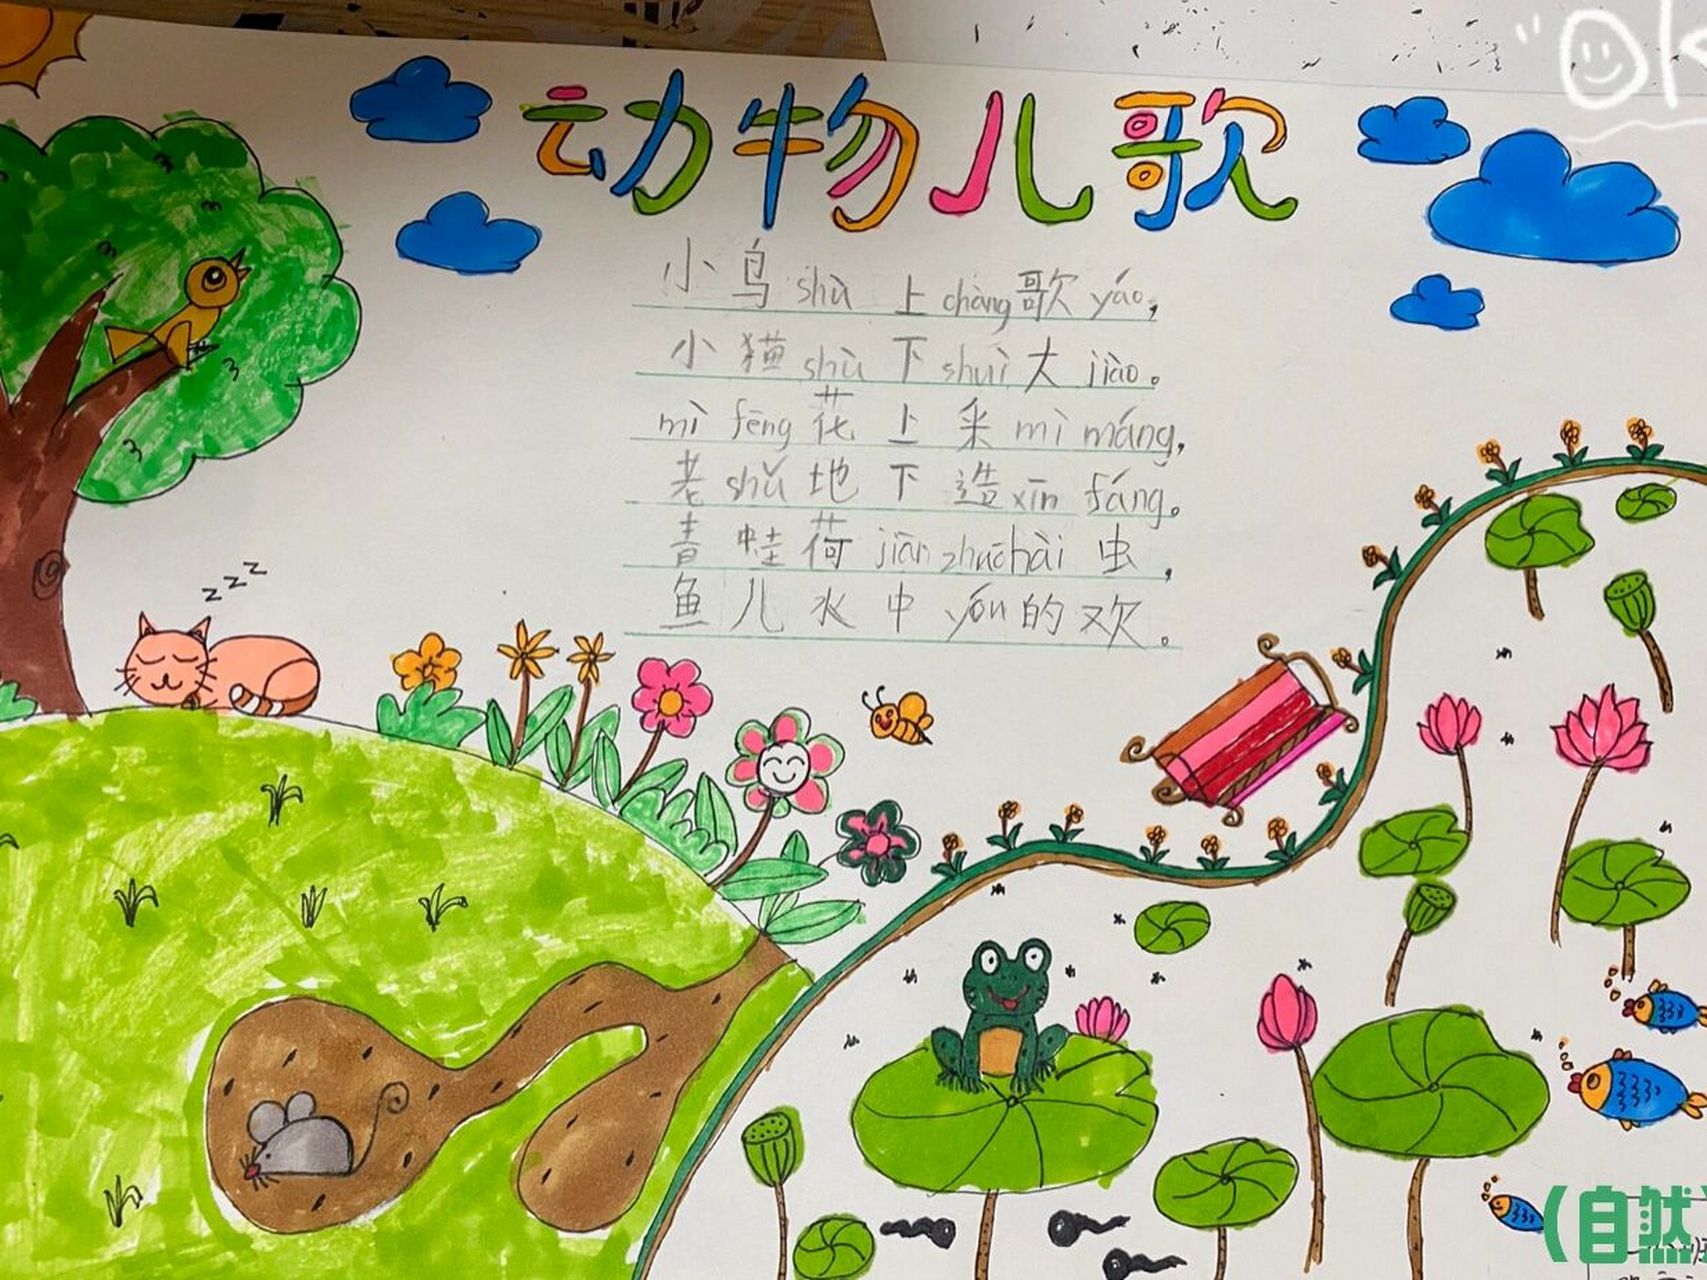 "OK
动物儿歌
小鸟 shù 上 chàng 歌 yáo,
小猫 shù 下 shuì 大 jiào。
mì fēng 花上采 mì máng,
老 shǔ 地下造 xīn fáng。
青蛙荷 jiān zhuō hài 虫,
鱼儿水中 yóu 的欢。
zzz
(自然